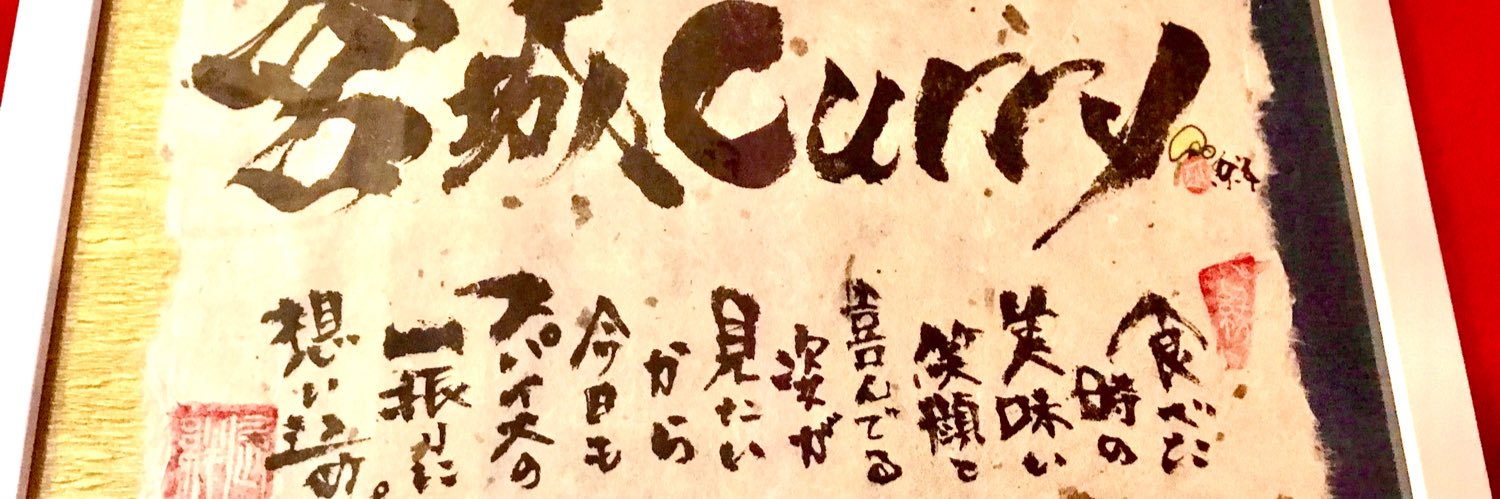 宮城Curry
食べた
時の
美味い
笑顔と
喜んでる
姿が
見たい
から
今日も
スパイスの
一振りに
想い込め。